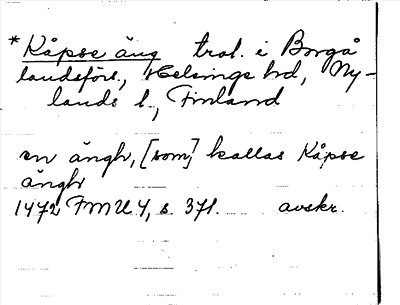 * Kåpse äng trol. i Borgå
landsförs., Helsinge hd, Ny-
lands l., Finland
en ängh, [som] kallas Kåpse
ängh
1472 FMU 4, s. 371. avskr.